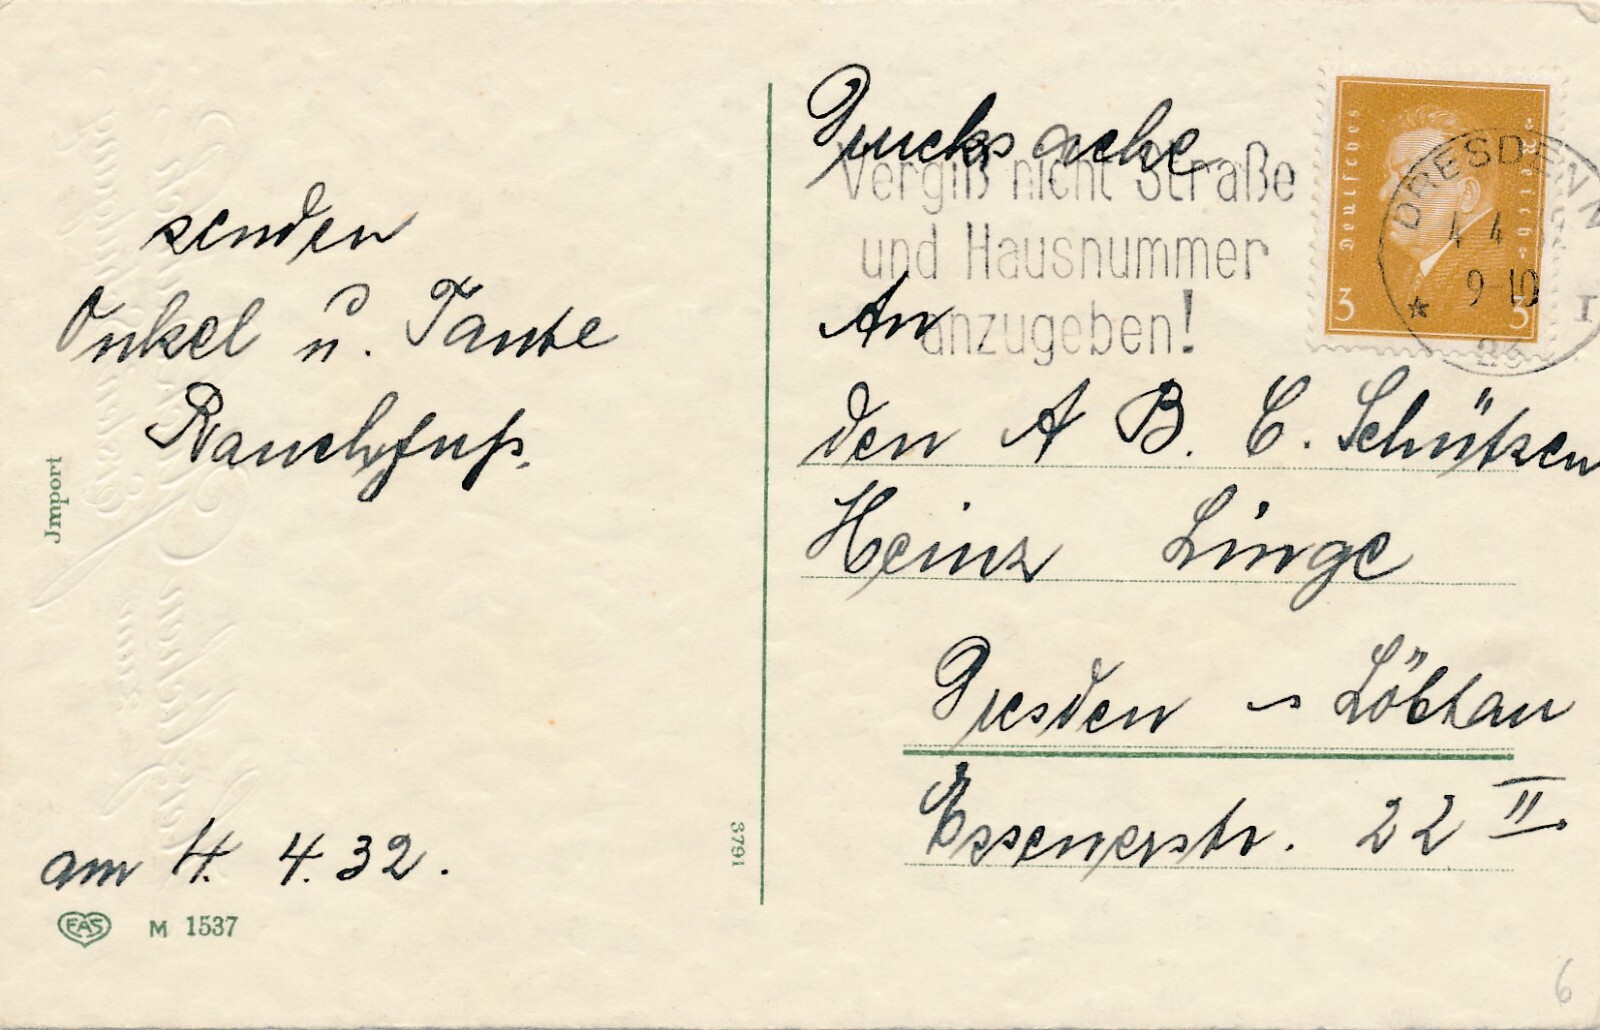 senden
Onkel u. Tante
Rauchfuß.
am 4. 4. 32.
EAS M 1537
Jmport
3791
Drucksache
Vergiß nicht Straße
und Hausnummer
anzugeben!
Deutsches Reich
3 3
DRESDEN
4 4
9-10
An
den A B. C. Schützen
Heinz Linge
Dresden - Löbtau
Essenerstr. 22 II.
6